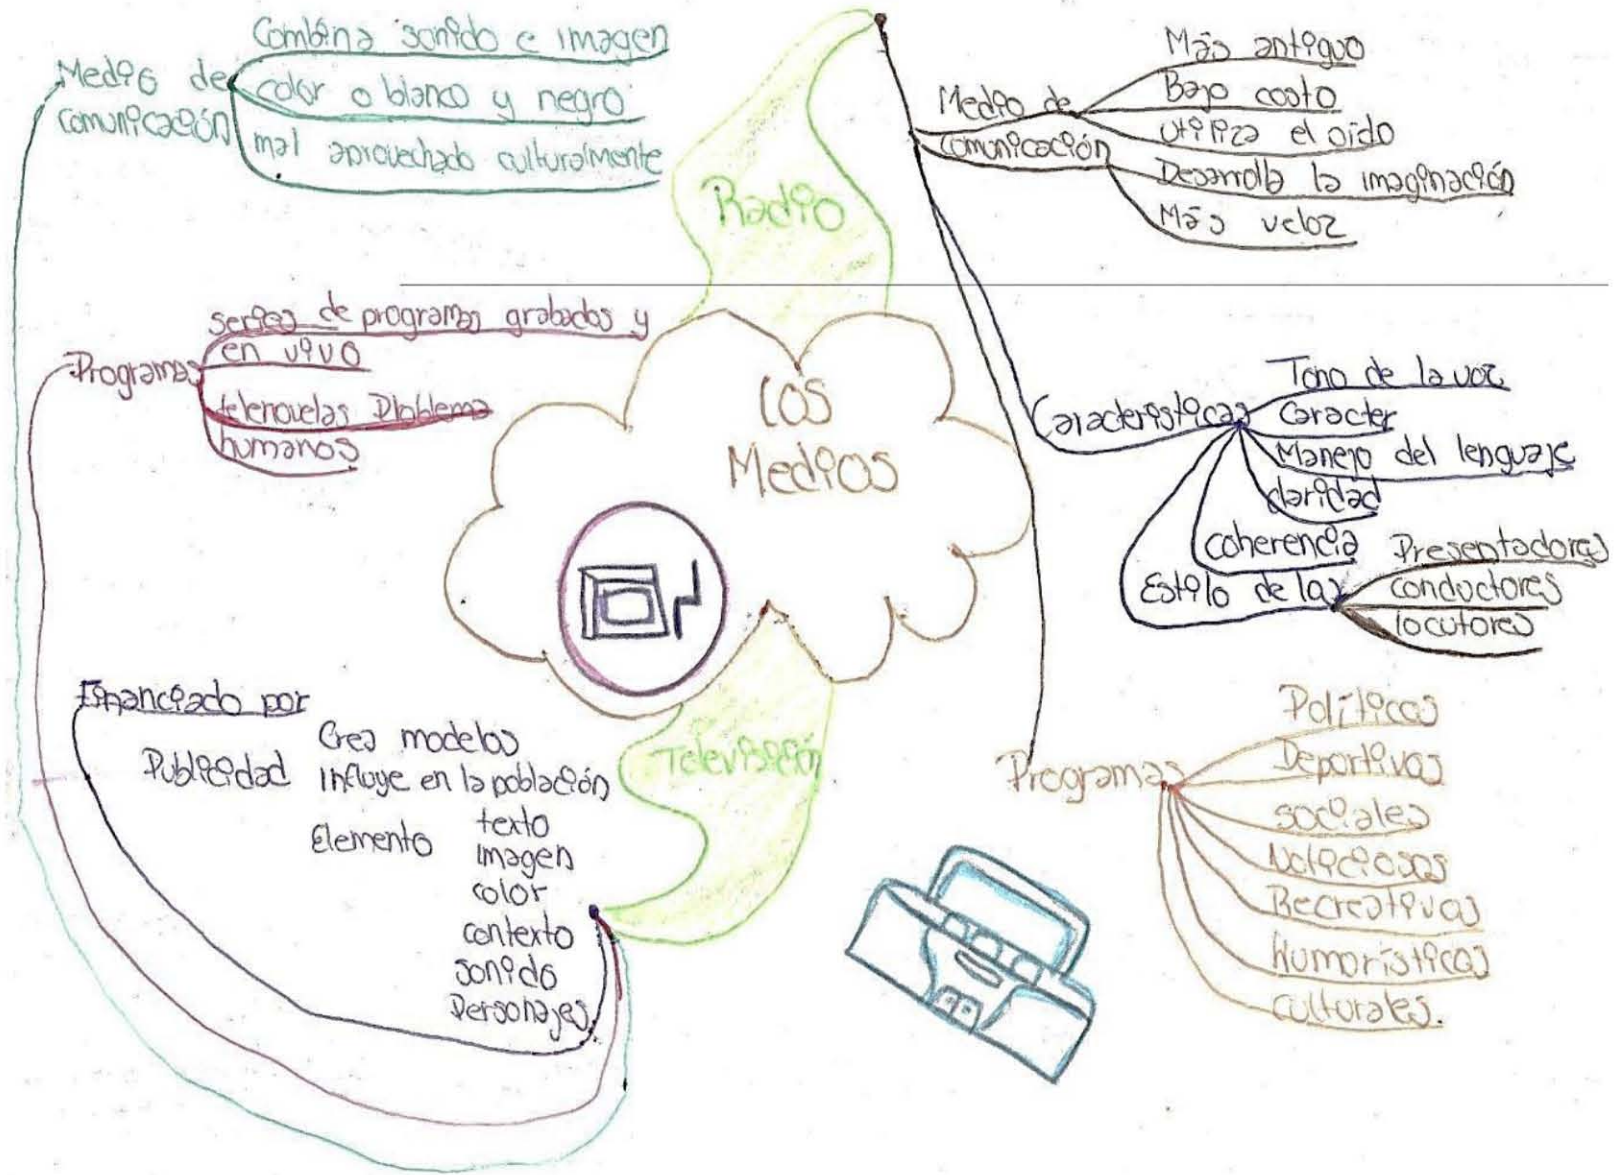 Los
Medios
Radio
Medio de
comunicación
Más antiguo
Bajo costo
utiliza el oído
Desarrolla la imaginación
Más veloz
Caracteristicas
Tono de la voz
Caracter
Manejo del lenguaje
claridad
coherencia
Estilo de las
Presentadores
conductores
locutores
Programas
Políticos
Deportivos
sociales
Noticiosos
Recreativos
Humorísticos
culturales.
Televisión
Medio de
comunicación
Combina sonido e imagen
color o blanco y negro
mal aprovechado culturalmente
Programas
series de programas grabados y
en vivo
telenovelas Ploblema
humanos
Financiado por
Publicidad
Crea modelos
Influye en la población
Elemento
texto
imagen
color
contexto
sonido
Personajes